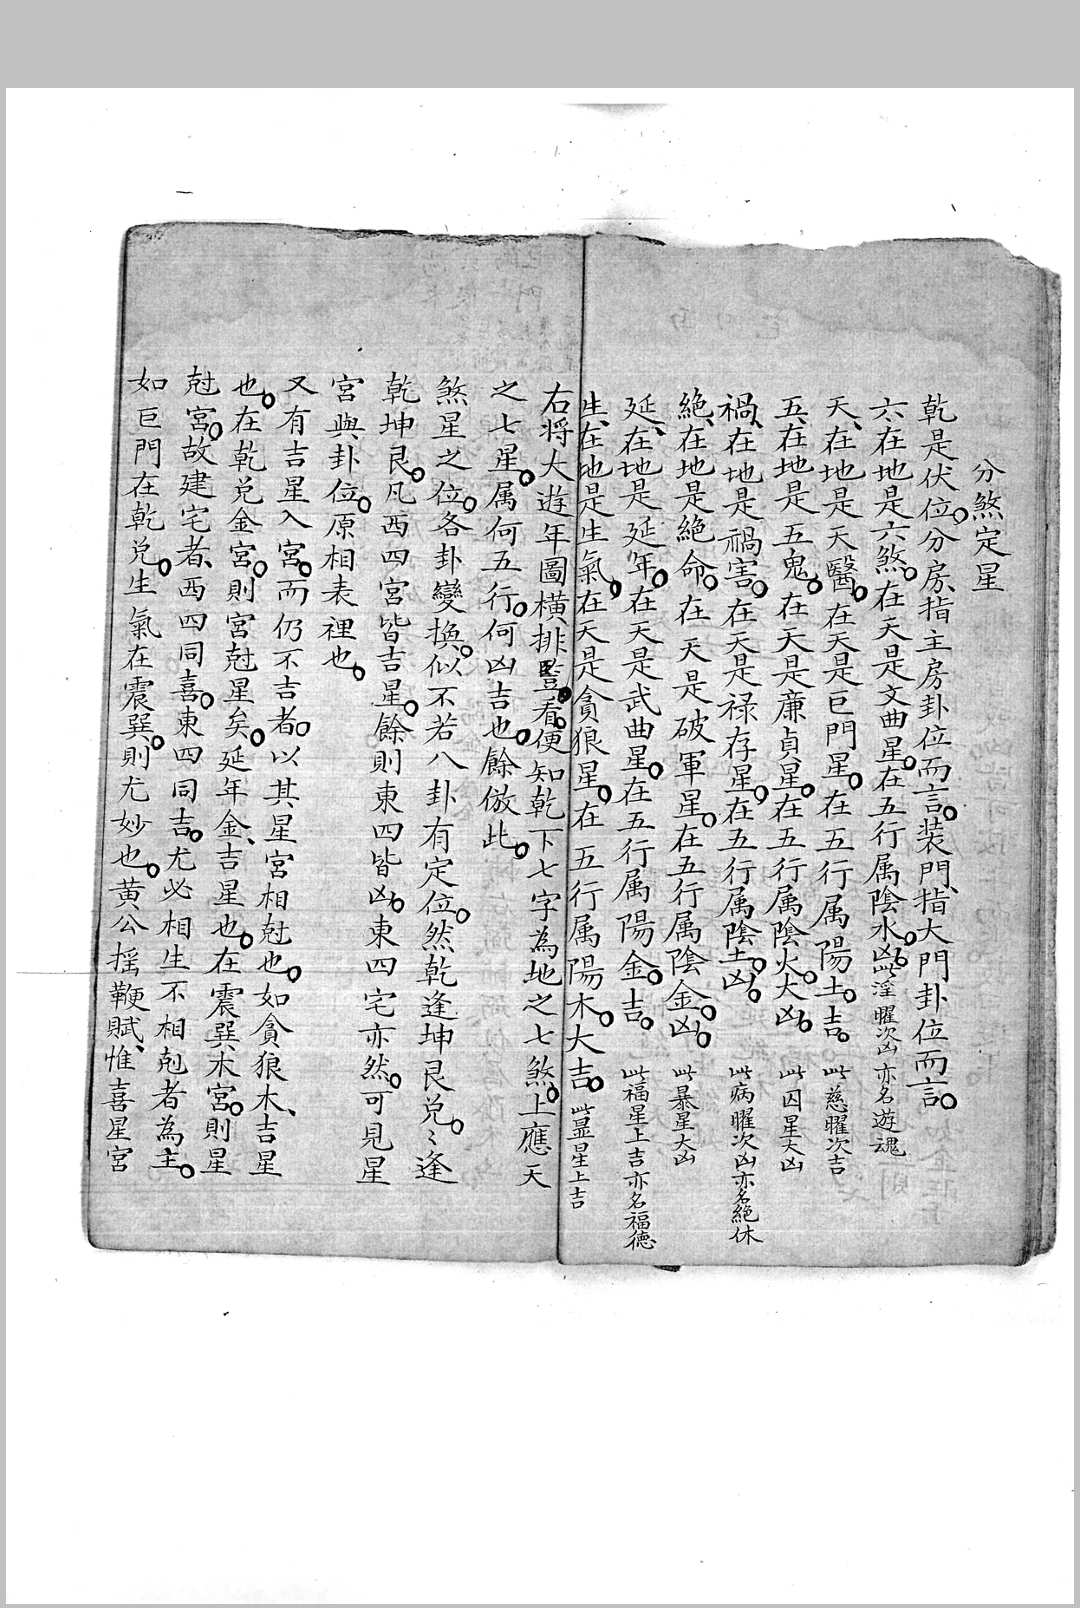 分煞定星
乾是伏位。分房、指主房卦位而言。装門、指大門卦位而言。
六、在地是六煞。在天是文曲星。在五行属陰水。凶。此淫曜次凶亦名遊魂
天、在地是天醫。在天是巨門星。在五行属陽土。吉。此慈曜次吉
五、在地是五鬼。在天是廉貞星。在五行属陰火。大凶。此囚星大凶
禍、在地是禍害。在天是禄存星。在五行属陰土。凶。此病曜次凶亦名絶体
絶、在地是絶命。在天是破軍星。在五行属陰金。凶。此暴星大凶
延、在地是延年。在天是武曲星。在五行属陽金。吉。此福星上吉亦名福德
生、在地是生氣。在天是貪狼星。在五行属陽木。大吉。此显星上吉
右將大遊年圖橫排豎看。便知乾下七字為地之七煞。上應天
之七星。属何五行。何凶吉也。餘倣此。
煞星之位。各卦變換。似不若八卦有定位。然乾逢坤艮兑。〻逢
乾坤艮。凡西四宮皆吉星。餘則東四皆凶。東四宅亦然。可見星
宮與卦位。原相表裡也。
又有吉星入宮。而仍不吉者。以其星宮相尅也。如貪狼木、吉星
也。在乾兑金宮。則宮尅星矣。延年金、吉星也。在震巽木宮。則星
尅宮。故建宅者、西四同喜。東四同吉。尤必相生不相尅者為主。
如巨門在乾兑。生氣在震巽。則尤妙也。黄公揺鞭賦、惟喜星宮